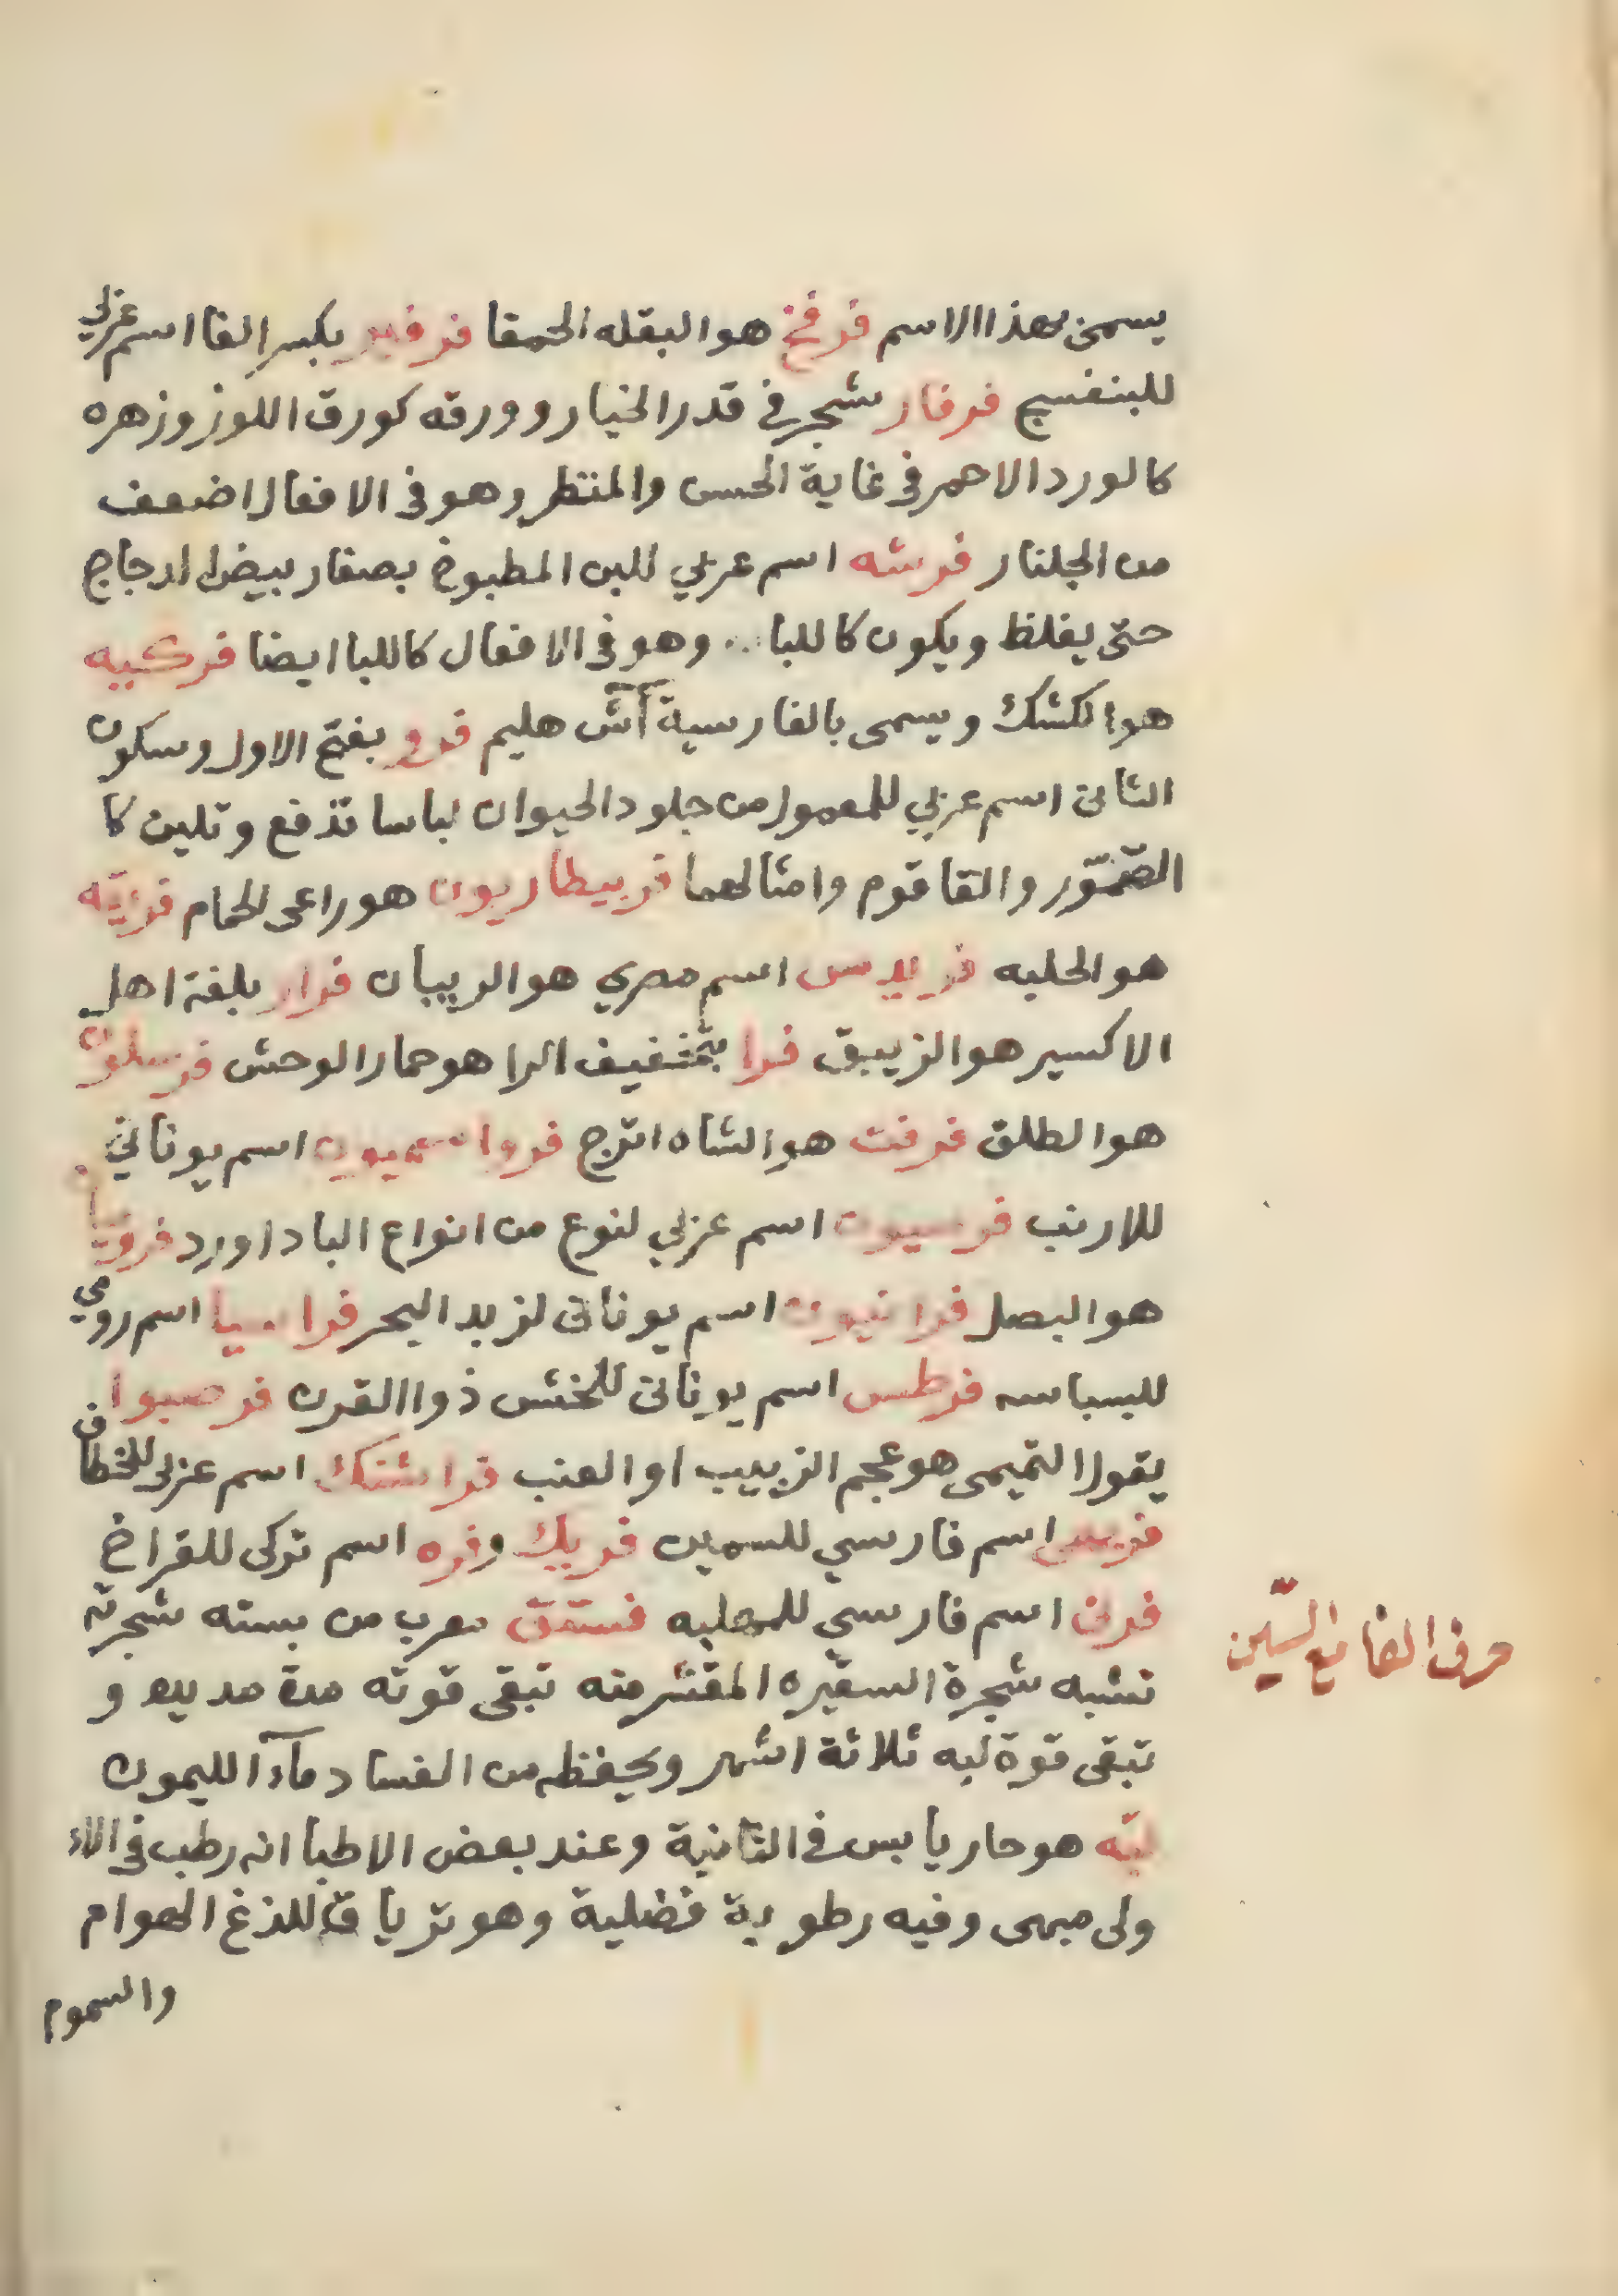 يسمى بهذا الاسم فرفخ هو البقله الحمقا فرفير بكسر الفا اسم عربي
للبنفسج فرفار شجر في قدر الخيار وورقه كورق اللوز وزهره
كالورد الاحمر في غاية الحسن والمنظر وهو في الافعال اضعف
من الجلنار فرشه اسم عربي للبن المطبوخ بصفار بيض الدجاج
حتى يغلظ ويكون كاللبا وهو في الافعال كاللبا ايضا فركبيه
هو الكشك ويسمى بالفارسية آش هليم فرو بفتح الاول وسكون
الثاني اسم عربي للمعمول من جلود الحيوان لباسا تدفع وتلين كا
السّمّور والقاقوم وامثالهما فربيطاريون هو راعى الحمام فريّه
هو الحلبه فريدس اسم مصري هو الربيان فرار بلغة اهل
الاكسير هو الزيبق فرا بتخفيف الرا هو حمار الوحش فرسلون
هو الطلق فرفت هو الشاه اترج اسم يوناني
للارنب فرسيون اسم عربي لنوع من انواع الباداورد فروتيا
هو البصل فرانيون اسم يوناني لزبد البحر فراسيا اسم رومي
للبسباسه فرطس اسم يوناني للخنثى ذو القرن فرصبوا
يقول التميمى هو عجم الزبيب او العنب فراشتك اسم عربي للخطاف
فربى اسم فارسي للسمين فريك وفره اسم تركى للفراخ
فرنى اسم فارسي للمهلبيه فستق معرب من بسته شجرته
تشبه شجرة السفيره المقشر منه تبقى قوته مدة مديده و
تبقى قوة لبه ثلاثة اشهر ويحفظه من الفساد مآء الليمون
لبّه هو حار يابس في الثانية وعند بعض الاطبا انه رطب في الا
ولى مبهى وفيه رطوبة فضلية وهو ترياق للذغ الهوام
والسموم
حرف الفا مع السّين